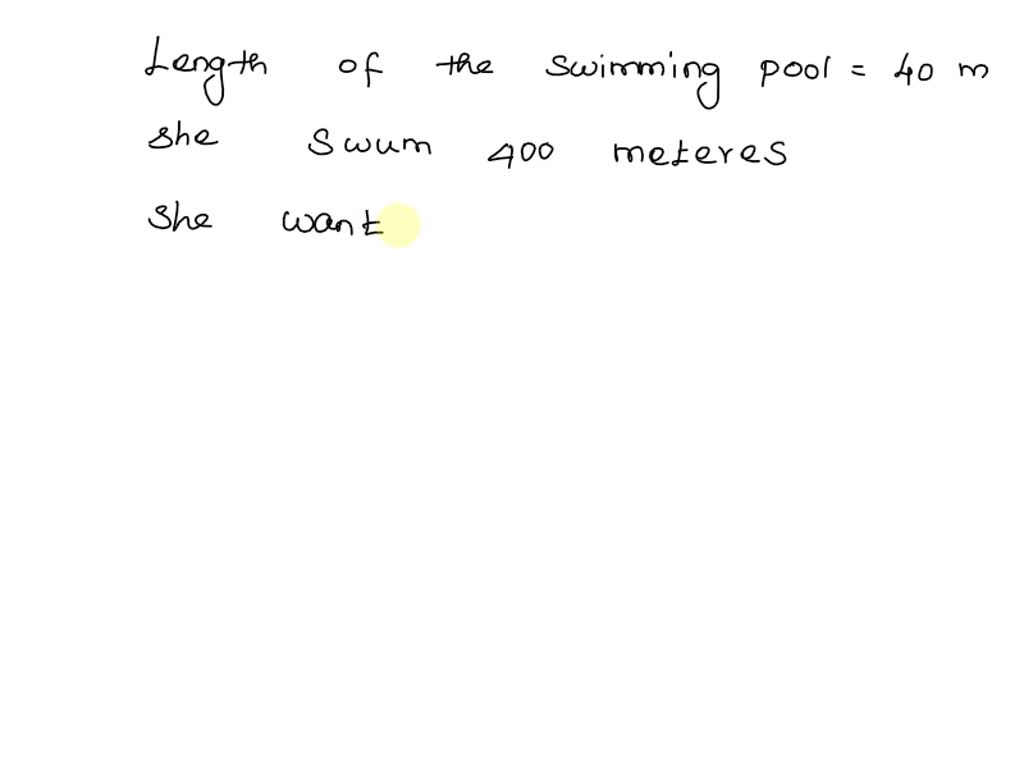 Length of the swimming pool = 40 m
she swum 400 meteres
She want